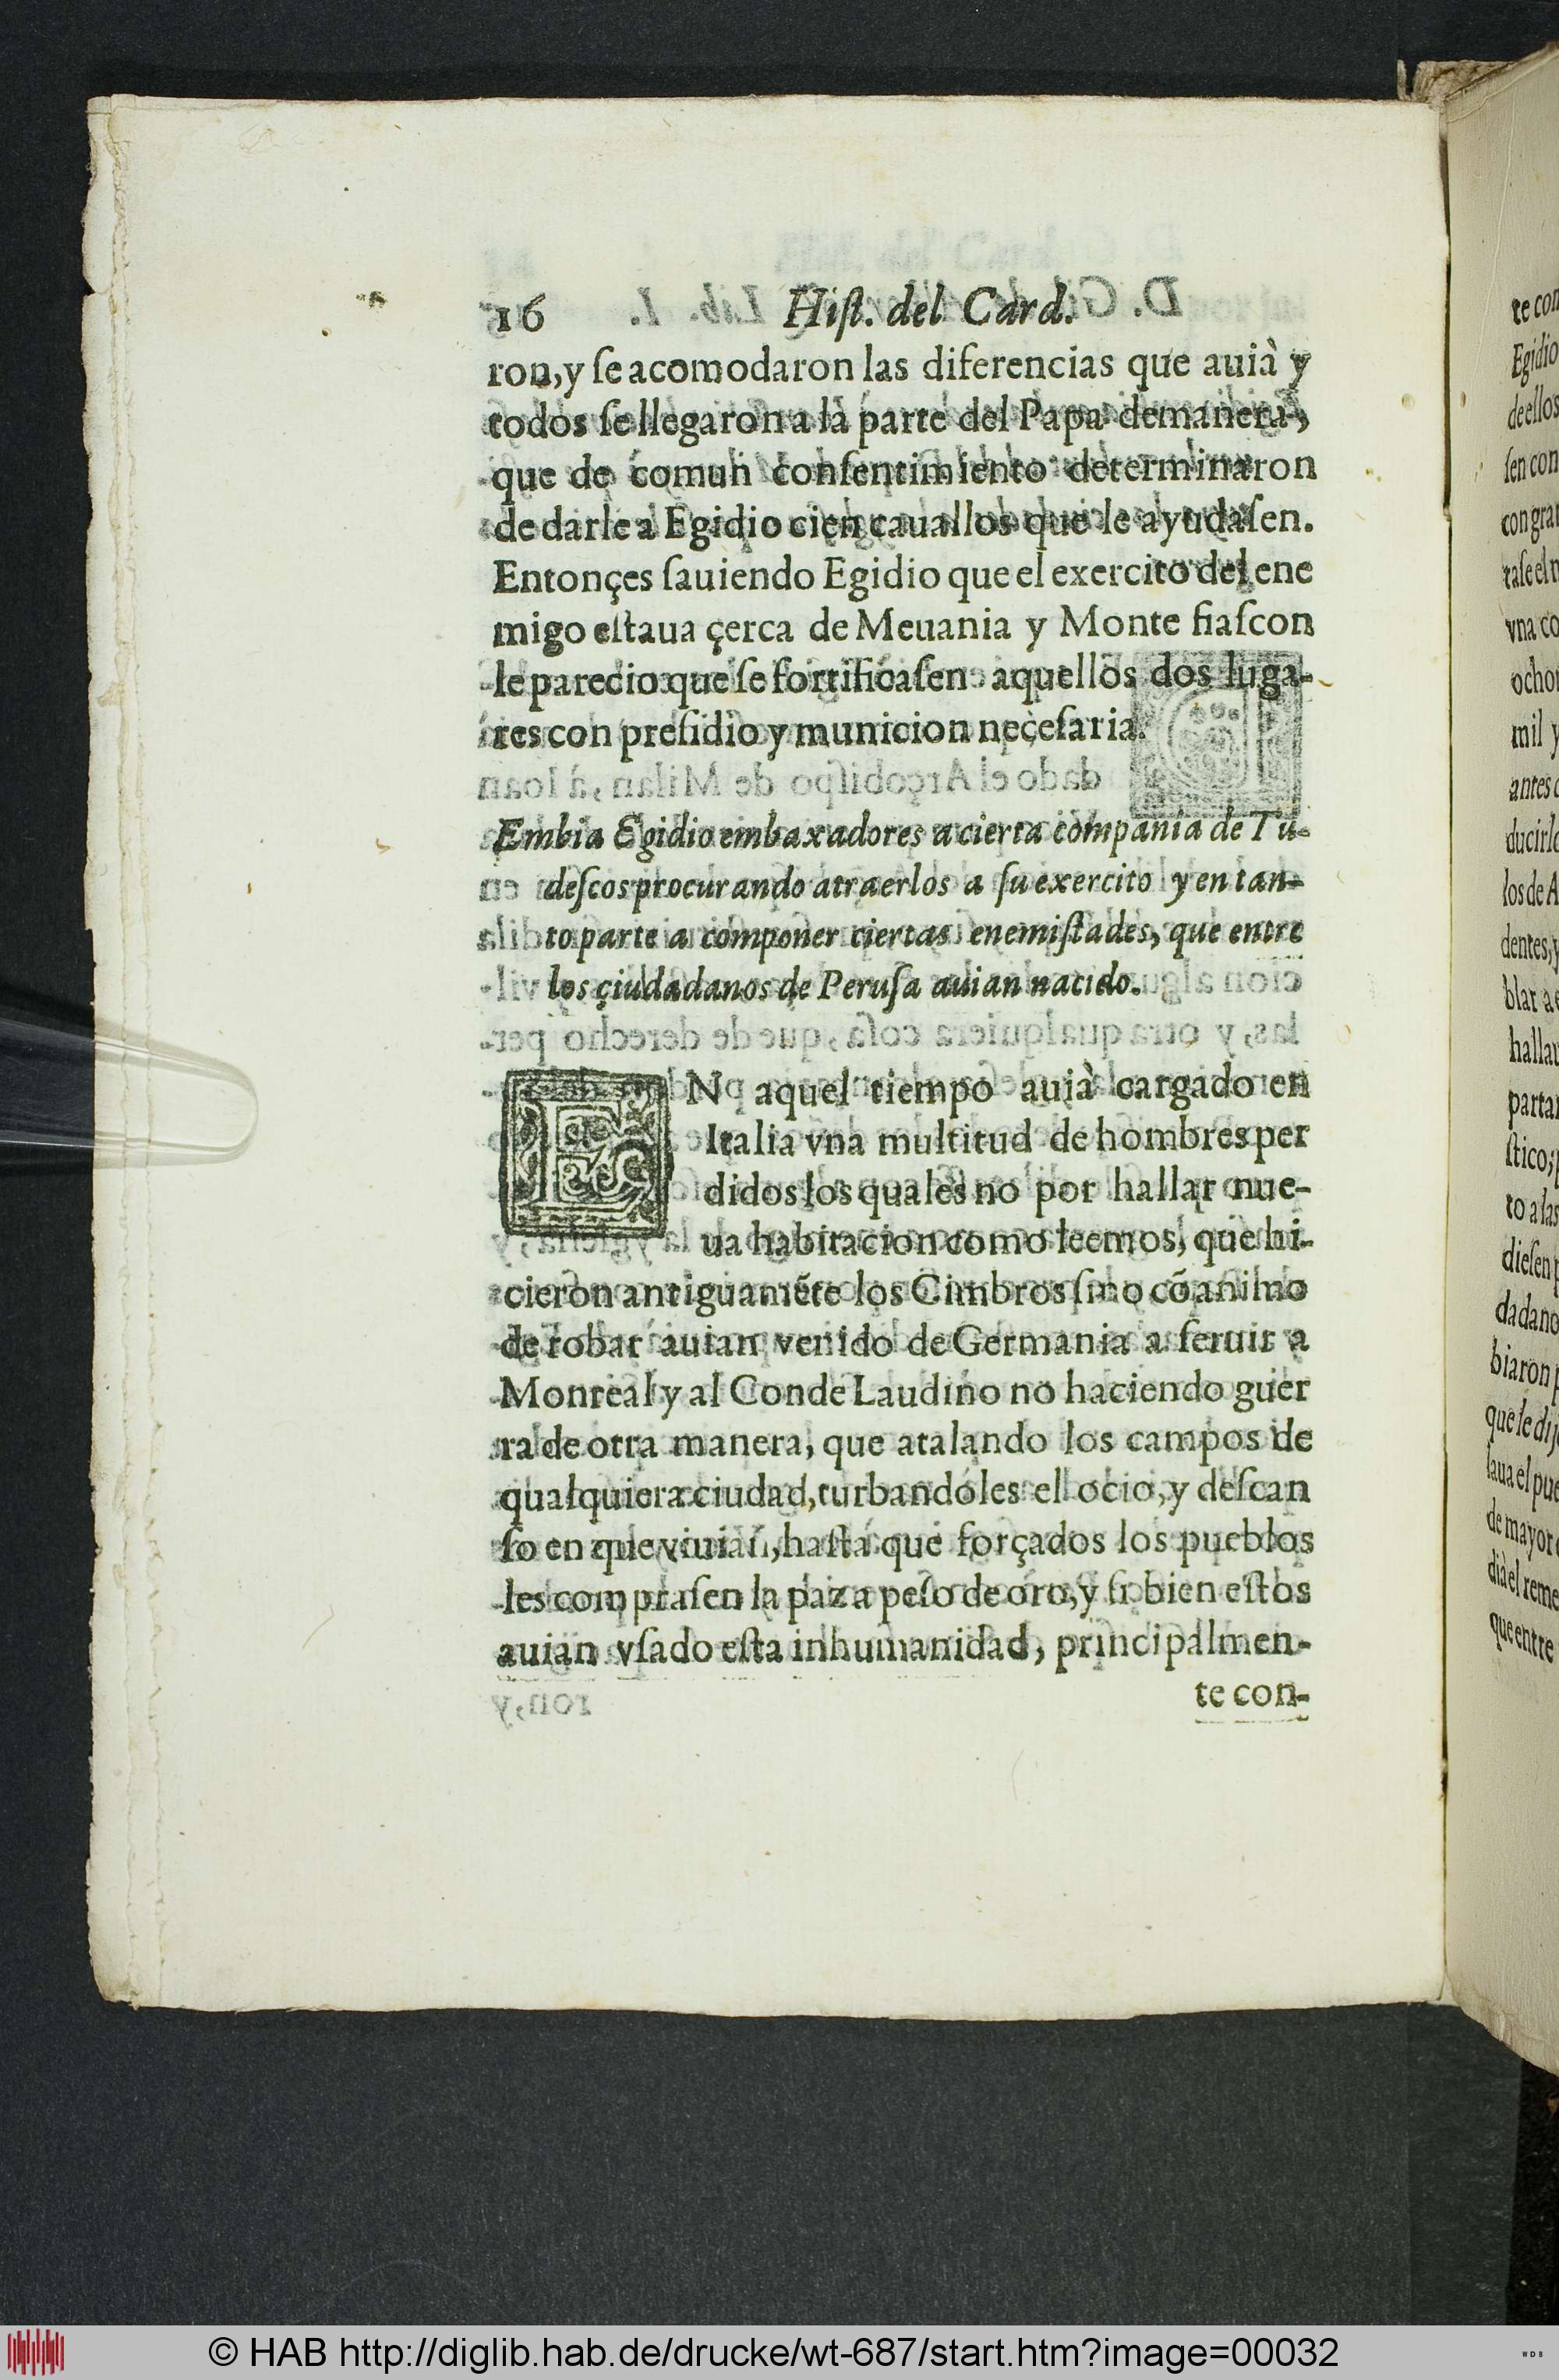 16 Hiſt. del Card.
ron, y ſe acomodaron las diferencias que auià y
todos ſe llegaron a la parte del Papa demanera,
que de comun conſentimiento determinaron
de darle a Egidio cien cauallos que le ayudaſen.
Entonçes ſauiendo Egidio que el exercito del ene
migo eſtaua çerca de Meuania y Monte fiaſcon
le parecio que ſe fortificaſen aquellos dos luga-
res con preſidio y municion neçeſaria.
Embia Egidio embaxadores a cierta compania de Tu-
deſcos procurando atraerlos a ſu exercito y en tan-
to parte a componer ciertas enemiſtades, que entre
los çiudadanos de Peruſa auian nacido.
EN aquel tiempo auià cargado en
Italia vna multitud de hombres per
didos los quales no por hallar nue-
ua habitacion como leemos, que hi-
cieron antiguamẽte los Cimbros ſino cõ animo
de robar auian venido de Germania a ſeruir a
Monreal y al Conde Laudino no haciendo guer
ra de otra manera, que atalando los campos de
qualquiera ciudad, turbandoles el ocio, y deſcan
ſo en que viuian, haſta que forçados los pueblos
les compraſen la paz a peſo de oro, y ſi bien eſtos
auian vſado eſta inhumanidad, principalmen-
te con-
te con
Egidio
de ellos
ſen con
con gra
vna co
mil y
antes
los de A
dentes, y
to a las
dadano
biaron
de mayor
que entre
© HAB http://diglib.hab.de/drucke/wt-687/start.htm?image=00032
WDB